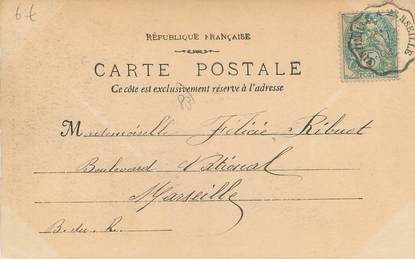 6€
RÉPUBLIQUE FRANÇAISE
CARTE POSTALE
Ce côté est exclusivement réservé à l'adresse
Mademoiselle Félicie Ribuot
Boulevard National
Marseille
B. du R.